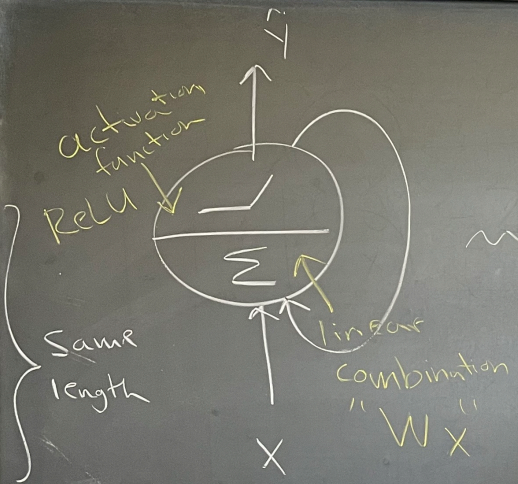 ŷ
activation
function
ReLU
Σ
Same
length
linear
combination
"Wx"
X